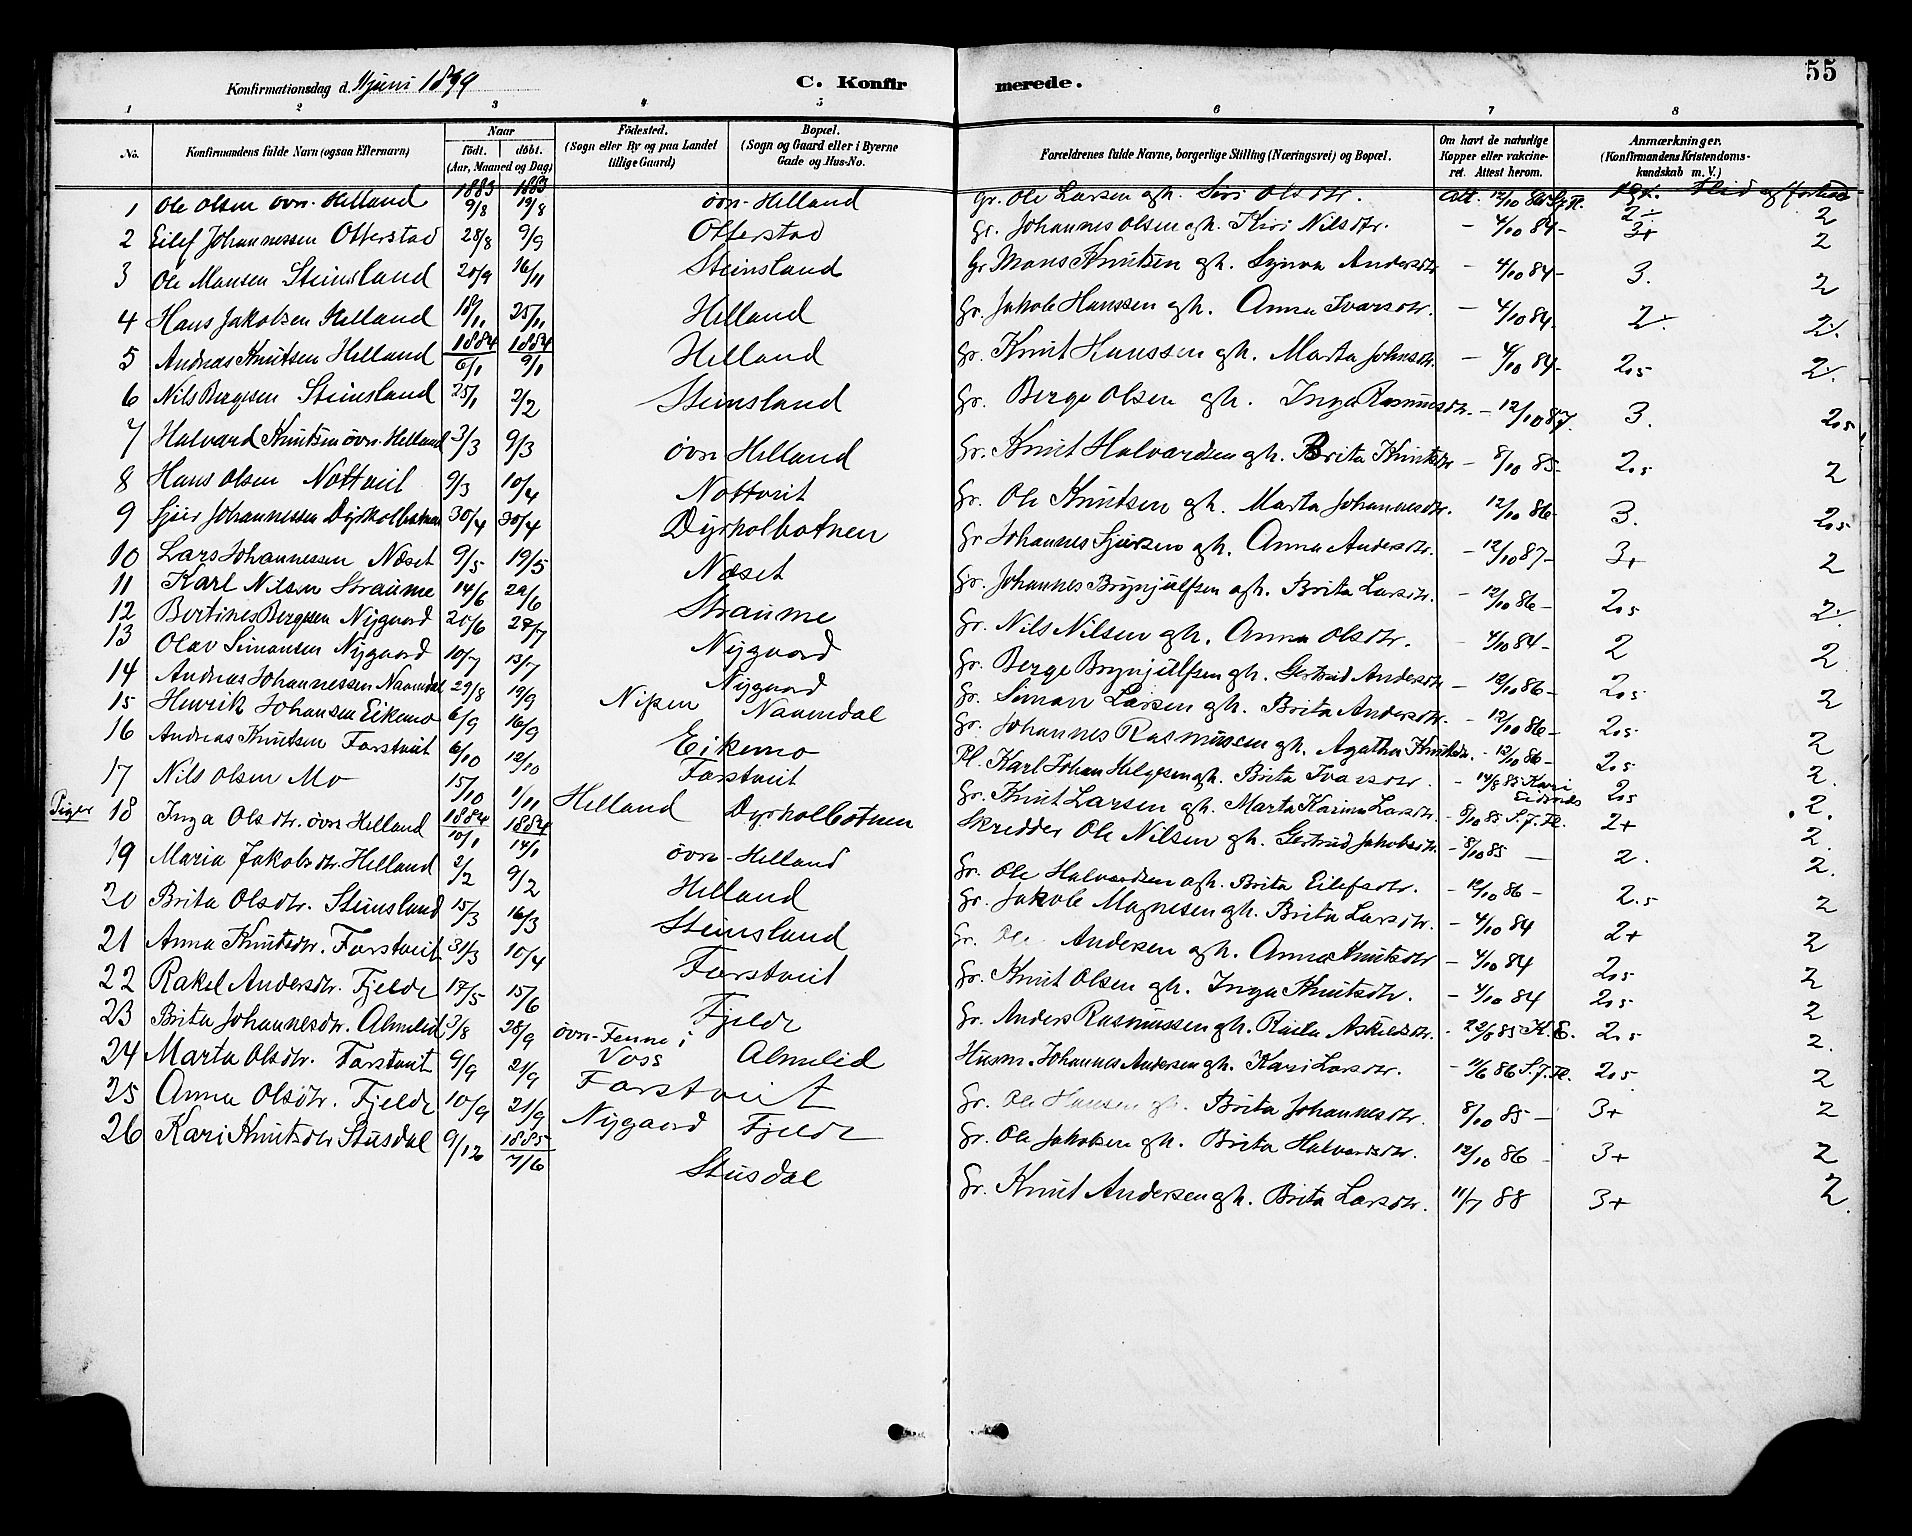 55
Konfirmationsdag d. 11 Juni 1899
C. Konfirmerede.
1 2 3 4 5 6 7 8
No. Konfirmandens fulde Navn (ogsaa Efternavn) Naar født. døbt. (Aar, Maaned og Dag) Fødested. (Sogn eller By og paa Landet tillige Gaard) Bopæl. (Sogn og Gaard eller i Byerne Gade og Hus-No. Forældrenes fulde Navne, borgerlige Stilling (Næringsvei) og Bopæl. Om havt de naturlige Kopper eller vakcineret. Attest herom. Anmærkninger. (Konfirmandens Kristendomskundskab m. V.)
1883 1883
1 Ole Olsen övr. Helland 9/8 19/8 övr. Helland Gr. Ole Larsen gh. Siri Olsdtr. Att. 12/10 86 2÷ 2
2 Eilef Johannessen Otterstad 28/8 9/9 Otterstad Gr. Johannes Olsen gh. Kari Nilsdtr. – 4/10 84 – 3+ 2
3 Ole Monsen Steinsland 20/9 16/11 Steinsland Gr. Mons Knutsen gh. Synva Andersdtr. – 4/10 84 – 3. 2
4 Hans Jakobsen Helland 18/11 25/11 Helland Gr. Jakob Hanssen gh. Anna Ivarsdtr. – 4/10 84. 2÷ 2÷
1884 1884
5 Andreas Knutsen Helland 6/1 9/1 Helland Gr. Knut Hanssen gh. Marta Johnsdtr. – 4/10 84 – 2,5 2÷
6 Nils Bergesen Steinsland 25/1 2/2 Steinsland Gr. Berge Olsen gh. Inga Rasmusdtr. – 12/10 87. 3. 2,5
7 Halvard Knutsen övr. Helland 3/3 9/3 övr. Helland Gr. Knut Halvardsen gh. Brita Knutsdtr – 8/10 85 – 2,5 2
8 Hans Olsen Nottveit 9/3 10/4 Nottveit Gr. Ole Knutsen gh. Marta Johannesdtr. 12/10 86 – 3. 2,5
9 Sjur Johannessen Dyrkolbotnen 30/4 30/4 Dyrkolbotnen Gr. Johannes Sjursen gh. Anna Andersdtr. – 12/10 87 – 3+ 2
10 Lars Johannessen Næset 9/5 19/5 Næset Gr. Johannes Brynjulfsen gh. Brita Larsdtr. – 12/10 86 – 2,5 2÷
11 Karl Nilsen Straume 14/6 22/6 Straume Gr. Nils Nilsen gh. Anna Olsdtr. – 4/10 84 – 2 2
12 Bertines Bergesen Nygaard 20/6 27/7 Nygaard Gr. Berge Brynjulfsen gh. Gertrud Andersdtr – 12/10 86 – 2,5 2
13 Olav Simonsen Nygaard 10/7 13/7 Nygaard Gr. Simon Larsen gh. Brita Andersdtr. – 12/10 86 – 2,5 2
14 Andreas Johannessen Naamdal 29/8 19/9 Naamdal Gr. Johannes Rasmussen gh. Agatha Knutsdtr. – 12/10 86 – 2,5 2.
15 Henrik Johansen Eikemo 6/9 16/9 Eikemo Pl. Karl Johan Helgesen gh. Brita Ivarsdtr. – 14/8 85 Kari Eidsnes 2,5 2.
16 Andreas Knutsen Farstveit 6/10 12/10 Farstveit Gr. Knut Larsen gh. Marta Karina Larsdtr. – 8/10 85 2+ 2.
17 Nils Olsen Mo 15/10 1/11 Helland Dyrkolbotnen Skredder Ole Nilsen gh. Gertrud Jakobsdtr. – 8/10 85 – 2. 2.
1884 1884
Piger 18 Inga Olsdtr. övr. Helland 10/1 14/1 övr. Helland Gr. Ole Halvardsen gh. Brita Eilefsdtr. – 12/10 86 – 2.5 2
19 Maria Jakobsdtr. Helland 2/2 9/2 Helland Gr. Jakob Magnesen gh. Brita Larsdtr. – 4/10 84 2+ 2
20 Brita Olsdtr. Steinsland 15/3 16/3 Steinsland Gr. Ole Andersen gh. Anna Knutsdtr – 4/10 84 2,5 2
21 Anna Knutsdtr. Farstveit 31/3 10/4 Farstveit Gr. Knut Olsen gh. Inga Knutsdtr. – 4/10 84 2,5 2
22 Rakel Andersdtr. Fjelde 17/5 15/6 Fjelde Gr. Anders Rasmussen gh. – K. E. 2,5 2.
23 Brita Johannesdtr. Almelid 3/8 28/9 övr. Fenne i Voss Almelid Husm. Johannes Andersen gh. Kari Larsdtr. – 11/6 86 2,5 2
24 Marta Olsdtr. Farstveit 9/9 21/9 Farstveit Gr. Ole Hansen gh. Brita Johannesdtr. 8/10 85 – 3+ 2
25 Anna Olsdtr. Fjelde 10/9 21/9 Nygaard Fjelde Gr. Ole Jakobsen gh. Brita Halvardsdtr. 12/10 86 – 3+ 2
26 Kari Knutsdtr Stusdal 9/12 1885 7/6 Stusdal Gr. Knut Andersen gh. Brita Larsdtr. 11/7 88 3+ 2.